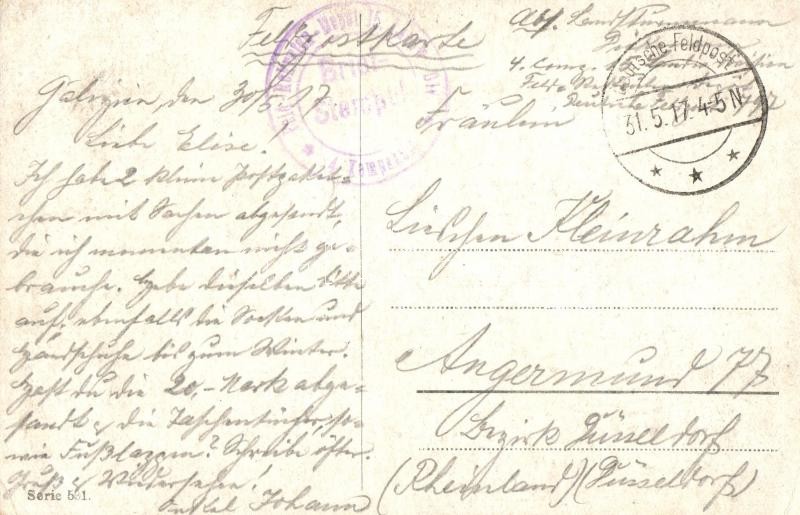 Feldpostkarte
Abs. Landsturmmann
4. Comp.
Deutsche Feldpost
31.5.17. 4-5 N
Brief-
Stempel
4. Kompagnie
Galizien, den 30/5. 17
Liebe Elise.
Ich habe 2 kleine Postpaket-
chen mit Sachen abgesandt,
die ich momentan nicht ge-
brauche. Hebe dieselben bitte
auf, ebenfalls die Socken und
Handschuhe bis zum Winter.
Hast du die 20,- Mark abge-
sandt & die Taschentücher, so-
wie Fußlappen? Schreibe öfter.
Gruß & Wiedersehen!
Onkel Johann
Serie 531.
Fräulein
Lieschen Kleinrahm
Angermund 77
Bezirk Düsseldorf
(Rheinland) (Düsseldorf)